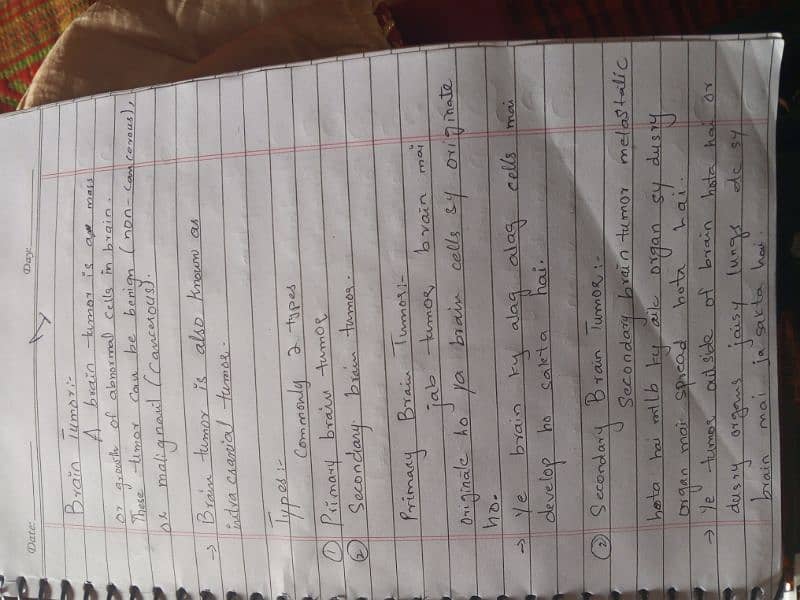 Date: Day:
Brain Tumor:-
A brain tumor is a mass
or growth of abnormal cells in brain.
These tumor can be benign (non-cancerous),
or malignant (Cancerous).
→ Brain tumor is also known as
intra cranial tumor.
Types:- commonly 2 types
① Primary brain tumor
② Secondary brain tumor.
Primary Brain Tumor:-
jab tumor brain mai
originate ho ya brain cells sy originate
ho.
→ Ye brain ky alag alag cells mai
develop ho sakta hai.
② Secondary Brain Tumor:-
Secondary brain tumor metastatic
hota hai mtlb ky aik organ sy dusry
organ mai spread hota hai.
→ Ye tumor outside of brain hota hai or
dusry organs jaisy lungs etc sy
brain mai ja sakta hai.